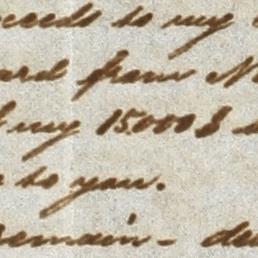 ceeds to my
ard from
my 15000$
to you.
remain - de